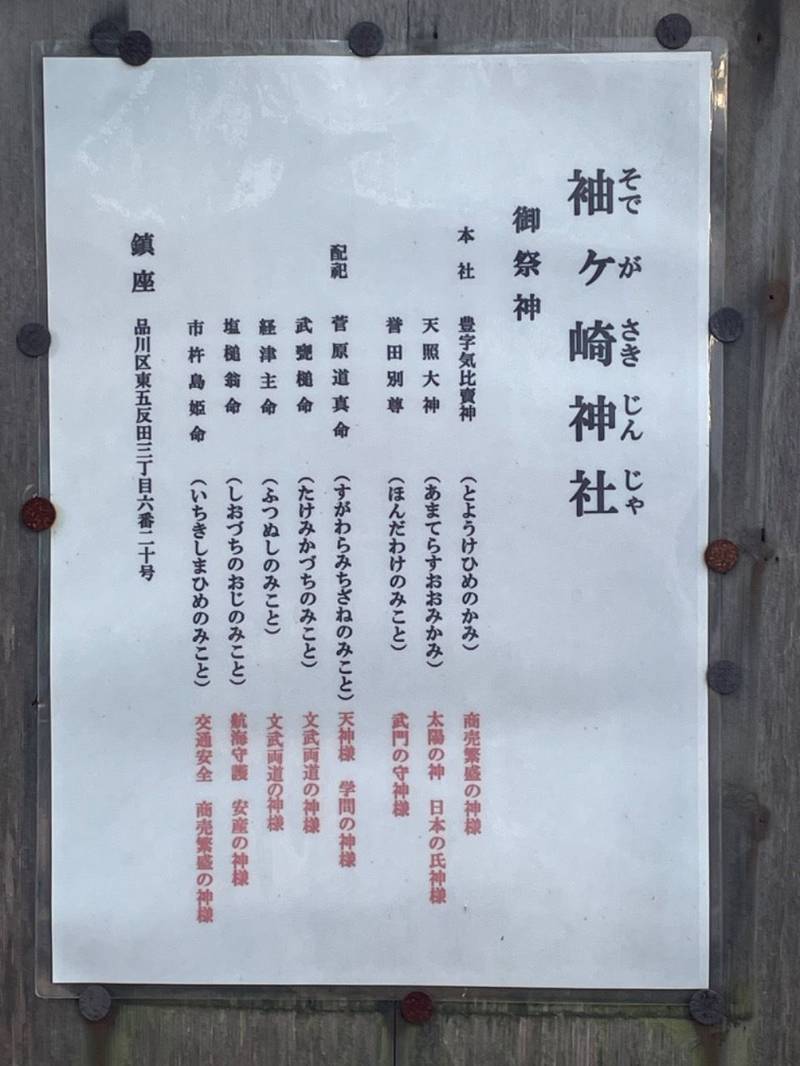 袖ヶ崎神社
そでがさきじんじゃ
御祭神
本社 豊宇気比賣神 (とようけひめのかみ) 商売繁盛の神様
天照大神 (あまてらすおおみかみ) 太陽の神 日本の氏神様
誉田別尊 (ほんだわけのみこと) 武門の守神様
配祀 菅原道真命 (すがわらみちざねのみこと) 天神様 学問の神様
武甕槌命 (たけみかづちのみこと) 文武両道の神様
経津主命 (ふつぬしのみこと) 文武両道の神様
塩槌翁命 (しおづちのおじのみこと) 航海守護 安産の神様
市杵島姫命 (いちきしまひめのみこと) 交通安全 商売繁盛の神様
鎮座 品川区東五反田三丁目六番二十号